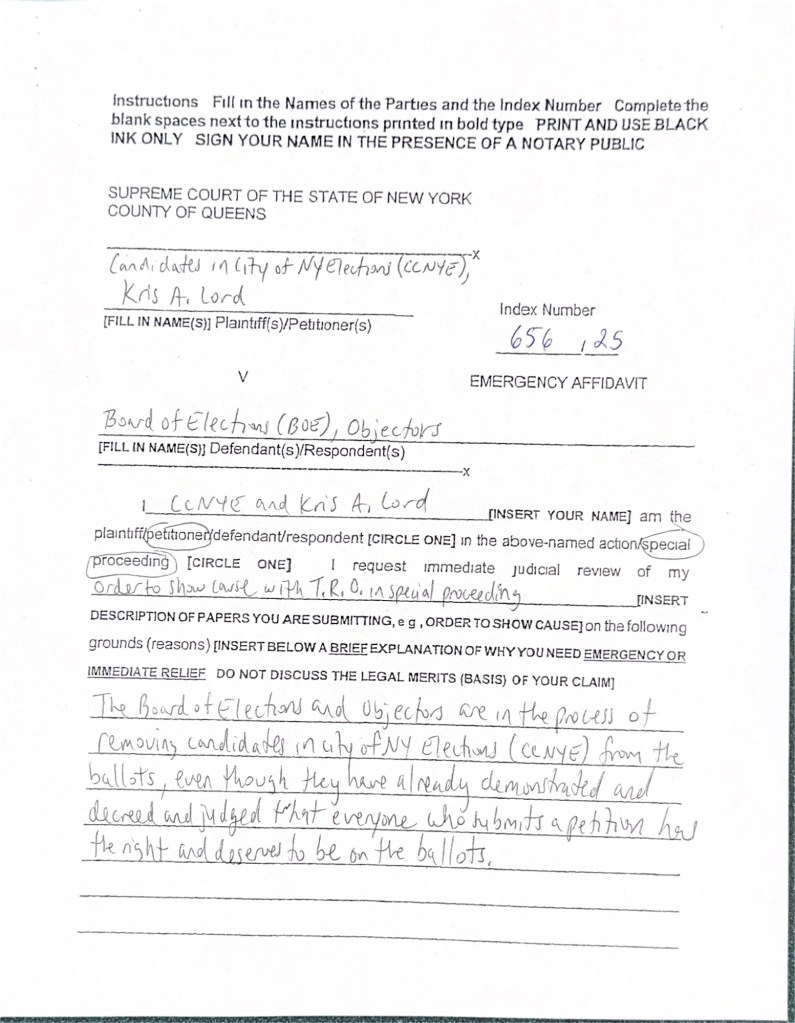 Instructions Fill in the Names of the Parties and the Index Number Complete the
blank spaces next to the instructions printed in bold type PRINT AND USE BLACK
INK ONLY SIGN YOUR NAME IN THE PRESENCE OF A NOTARY PUBLIC
SUPREME COURT OF THE STATE OF NEW YORK
COUNTY OF QUEENS
x
Candidates in City of NY Elections (CCNYE),
Kris A. Lord
[FILL IN NAME(S)] Plaintiff(s)/Petitioner(s)
Index Number
656 , 25
V
EMERGENCY AFFIDAVIT
Board of Elections (BOE), Objectors
[FILL IN NAME(S)] Defendant(s)/Respondent(s)
x
I CCNYE and Kris A. Lord [INSERT YOUR NAME] am the
plaintiff/petitioner/defendant/respondent [CIRCLE ONE] in the above-named action/special
proceeding [CIRCLE ONE] I request immediate judicial review of my
Order to show cause with T.R.O. in special proceeding [INSERT
DESCRIPTION OF PAPERS YOU ARE SUBMITTING, e g , ORDER TO SHOW CAUSE] on the following
grounds (reasons) [INSERT BELOW A BRIEF EXPLANATION OF WHY YOU NEED EMERGENCY OR
IMMEDIATE RELIEF DO NOT DISCUSS THE LEGAL MERITS (BASIS) OF YOUR CLAIM]
The Board of Elections and Objectors are in the process of
removing candidates in city of NY Elections (CCNYE) from the
ballots, even though they have already demonstrated and
decreed and judged that everyone who submits a petition has
the right and deserves to be on the ballots.